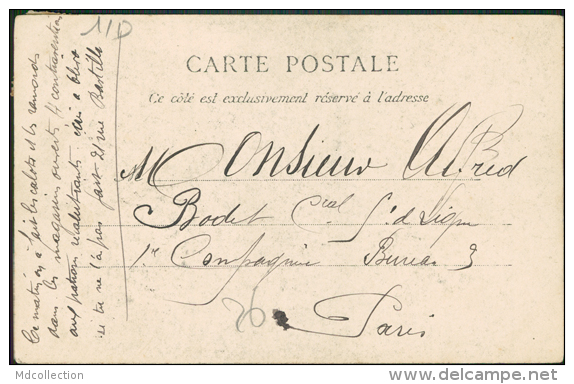 110
CARTE POSTALE
Ce côté est exclusivement réservé à l'adresse
Monsieur Alfred
Bodet Cial St d Ligne
1re Compagnie Bureau 3
Paris
20
Ce matin on à fait les calots et les
dans les magasins ouverts
aux patrons récalcitrants
si tu ne l'à pas fait 21 rue Bastille
Mdcollection
www.delcampe.net